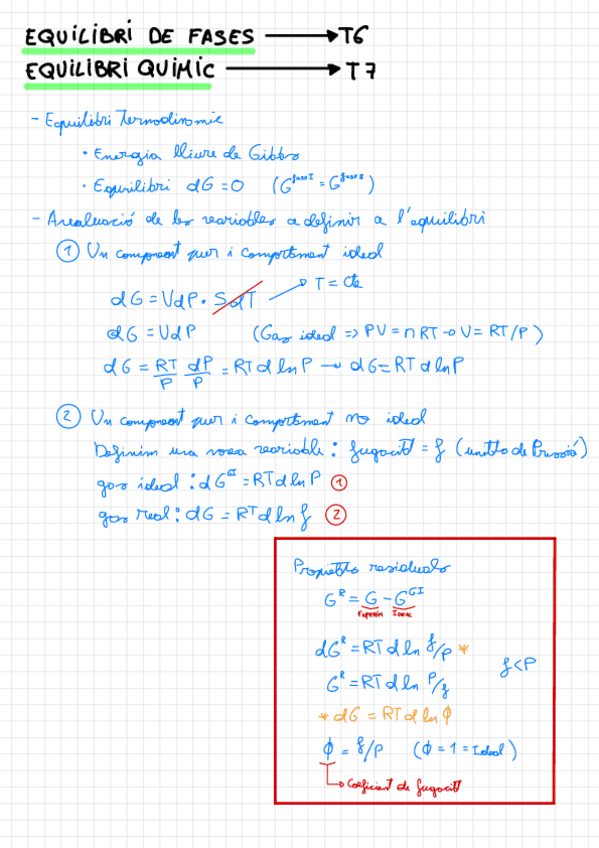 EQUILIBRI DE FASES → T6
EQUILIBRI QUÍMIC → T7
- Equilibri Termodinamic
· Energia lliure de Gibbs
· Equilibri dG = 0 (G^fase I = G^fase II)
- Avaluació de les variables a definir a l'equilibri
① Un component pur i comportament ideal
dG = VdP · SdT → T = cte
dG = VdP (Gas ideal => PV = nRT → V = RT/P)
dG = RT/P dP/P = RT d ln P → dG = RT d ln P
② Un component pur i comportament no ideal
Definim una nova variable: fugacitat = f (unitats de Pressió)
gas ideal: dG^GI = RT d ln P ①
gas real: dG = RT d ln f ②
Propietats residuals
G^R = G - G^GI
EXPERIM IDEAL
dG^R = RT d ln f/P *
f < P
G^R = RT d ln P/f
* dG = RT d ln ϕ
ϕ = f/P (ϕ = 1 = Ideal)
Coeficient de fugacitat